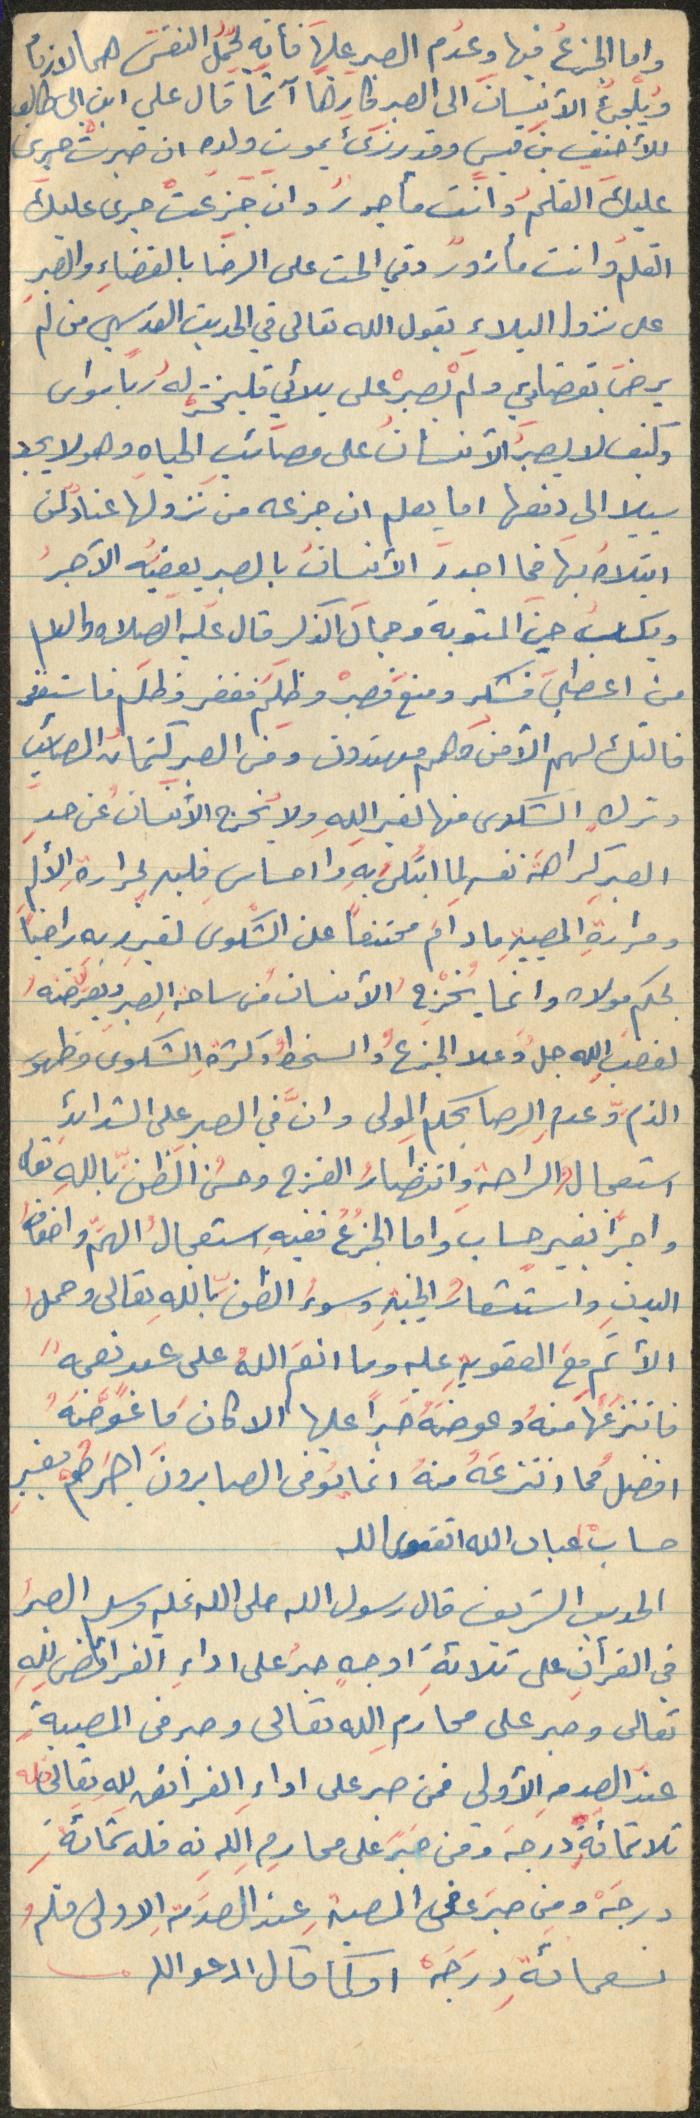 واما الجزعُ فيها وعدُم الصبر عليهَا فأنهِ يُحمّلُ النفسَ هما لازماً
ويُلجئُ الأنسانَ الى الصبر كارهًا آثمًا قال علي ابن ابي طالب
للأحنفِ بن قيسٍ وقد رزئَ بموت ولده ان صبرتَ جرى
عليكَ القلمُ وانت مأجورٌ وان جَزعتَ جرى عليكَ
القلمُ وانت مأزورٌ وفي الحث على الرضا بالقضاءِ والصبرِ
على نزول البلاءِ يقول الله تعالى في الحديث القدسي من لم
يرضَ بقضائي ولم يَصبرْ على بلائي فليتخذْ لهُ رباً سواى
وكيف لا يصبرُ الأنسانُ على مصائبِ الحياهِ وهو لا يجد
سبيلا الى دفعها اما يعلم ان جزعه من نزولها عنادٌ لمن
ابتلاهُ بها فما اجدرَ الأنسانُ بالصبر يعضيُه الأجرُ
ويكسبُ حسنَ المثوبة وجمالَ الذكر قال عليه الصلاه والسلام
من اعطيَ فشكر ومنعَ فصبرْ وظُلِمَ فغفر وظلَم فاستغفر
فالئك لهم الأمن وهم مهتدون ومن الصبر كتمانُ المصائبِ
وتركِ الشكوى منها لغير اللهِ ولا يخرج الأنسانُ عن حدِ
الصبرِ كراهةَ نفسهِ لما ابتُلىَ بهِ وااحساسِ قلبهِ بحرارةِ الألم
ومرارةِ المصيبهِ ما دامَ ممتنعاً عن الشكوى لغير ربه راضياً
بحكم مولاه وانما يُخرِجُ الأنسانَ من ساحةِ الصبرِ ويعرّضهُ
لغضبِ الله جلُ وعلا الجزعُ والسخطُ وكثرةِ الشكوى وظهور
الذمِ وعدمِ الرضا بحكم المولى وانَّ في الصبر على الشدائدِ
استعجالُ الراحة وانتظارُ الفرج وحسنُ الظنِّ باللهِ تعالى
واجرٌا بغيرِ حسابَ واما الجزعُ ففيهِ استعجالُ الهمِّ واضعافُ
البدنِ واستشعارُ الخيبةِ وسوءُ الظن باللهِ تعالى وحملُ
الأثم معَ العقوبهِ عليه وما انعَم اللهُ على عبدٍ نعمةً
فانتزعَها منهُ وعوضهُ صَبراً عليها الا كانَ ما عَوضّهُ
افضلُ مما انتزعَهُ منهُ انما يُوفى الصابرونَ اجرَهم بغيرِ
حسابْ عباد الله اتقوا الله
الحديث الشريف قال رسول الله صلى الله عليه وسلم الصبرُ
في القرأنِ على ثلاثةِ اوجهٍ صبرٌ على اداءِ الفرائضِ للهِ
تعالى وصبر على محارمِ اللهِ تعالى وصبر فى المصيبةِ
عندَ الصدمهِ الأولى فمن صبر على اداءِ الفرائض للهِ تعالَى فله
ثلاثمائةِ درجة ومن صَبَرَ على محارمِ اللهِ فله ستمائةَ
درجةْ ومن صبَر على المصيبةِ عندَ الصدمَة الاولى فلهُ
تسعمائةَ درَجةْ اوكما قال ادعو الله